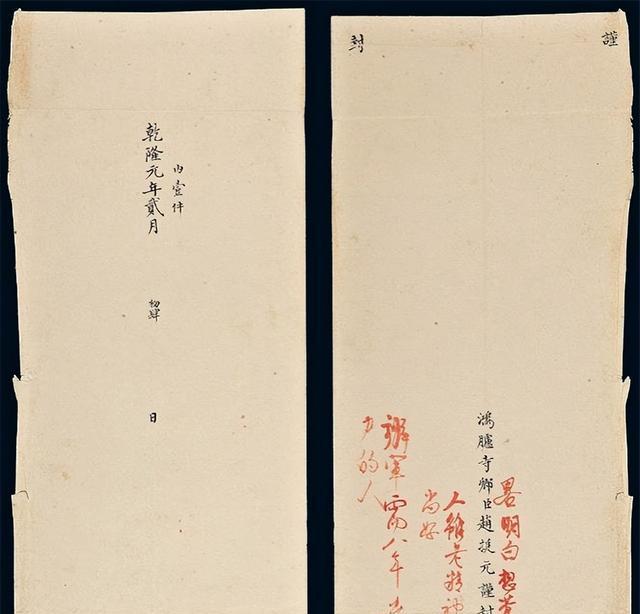 謹
封
畧明白想
鴻臚寺卿臣趙挺元謹封
人雖老精神
尚好
辦軍需八年
力的人
內壹件
乾隆元年貳月初肆日